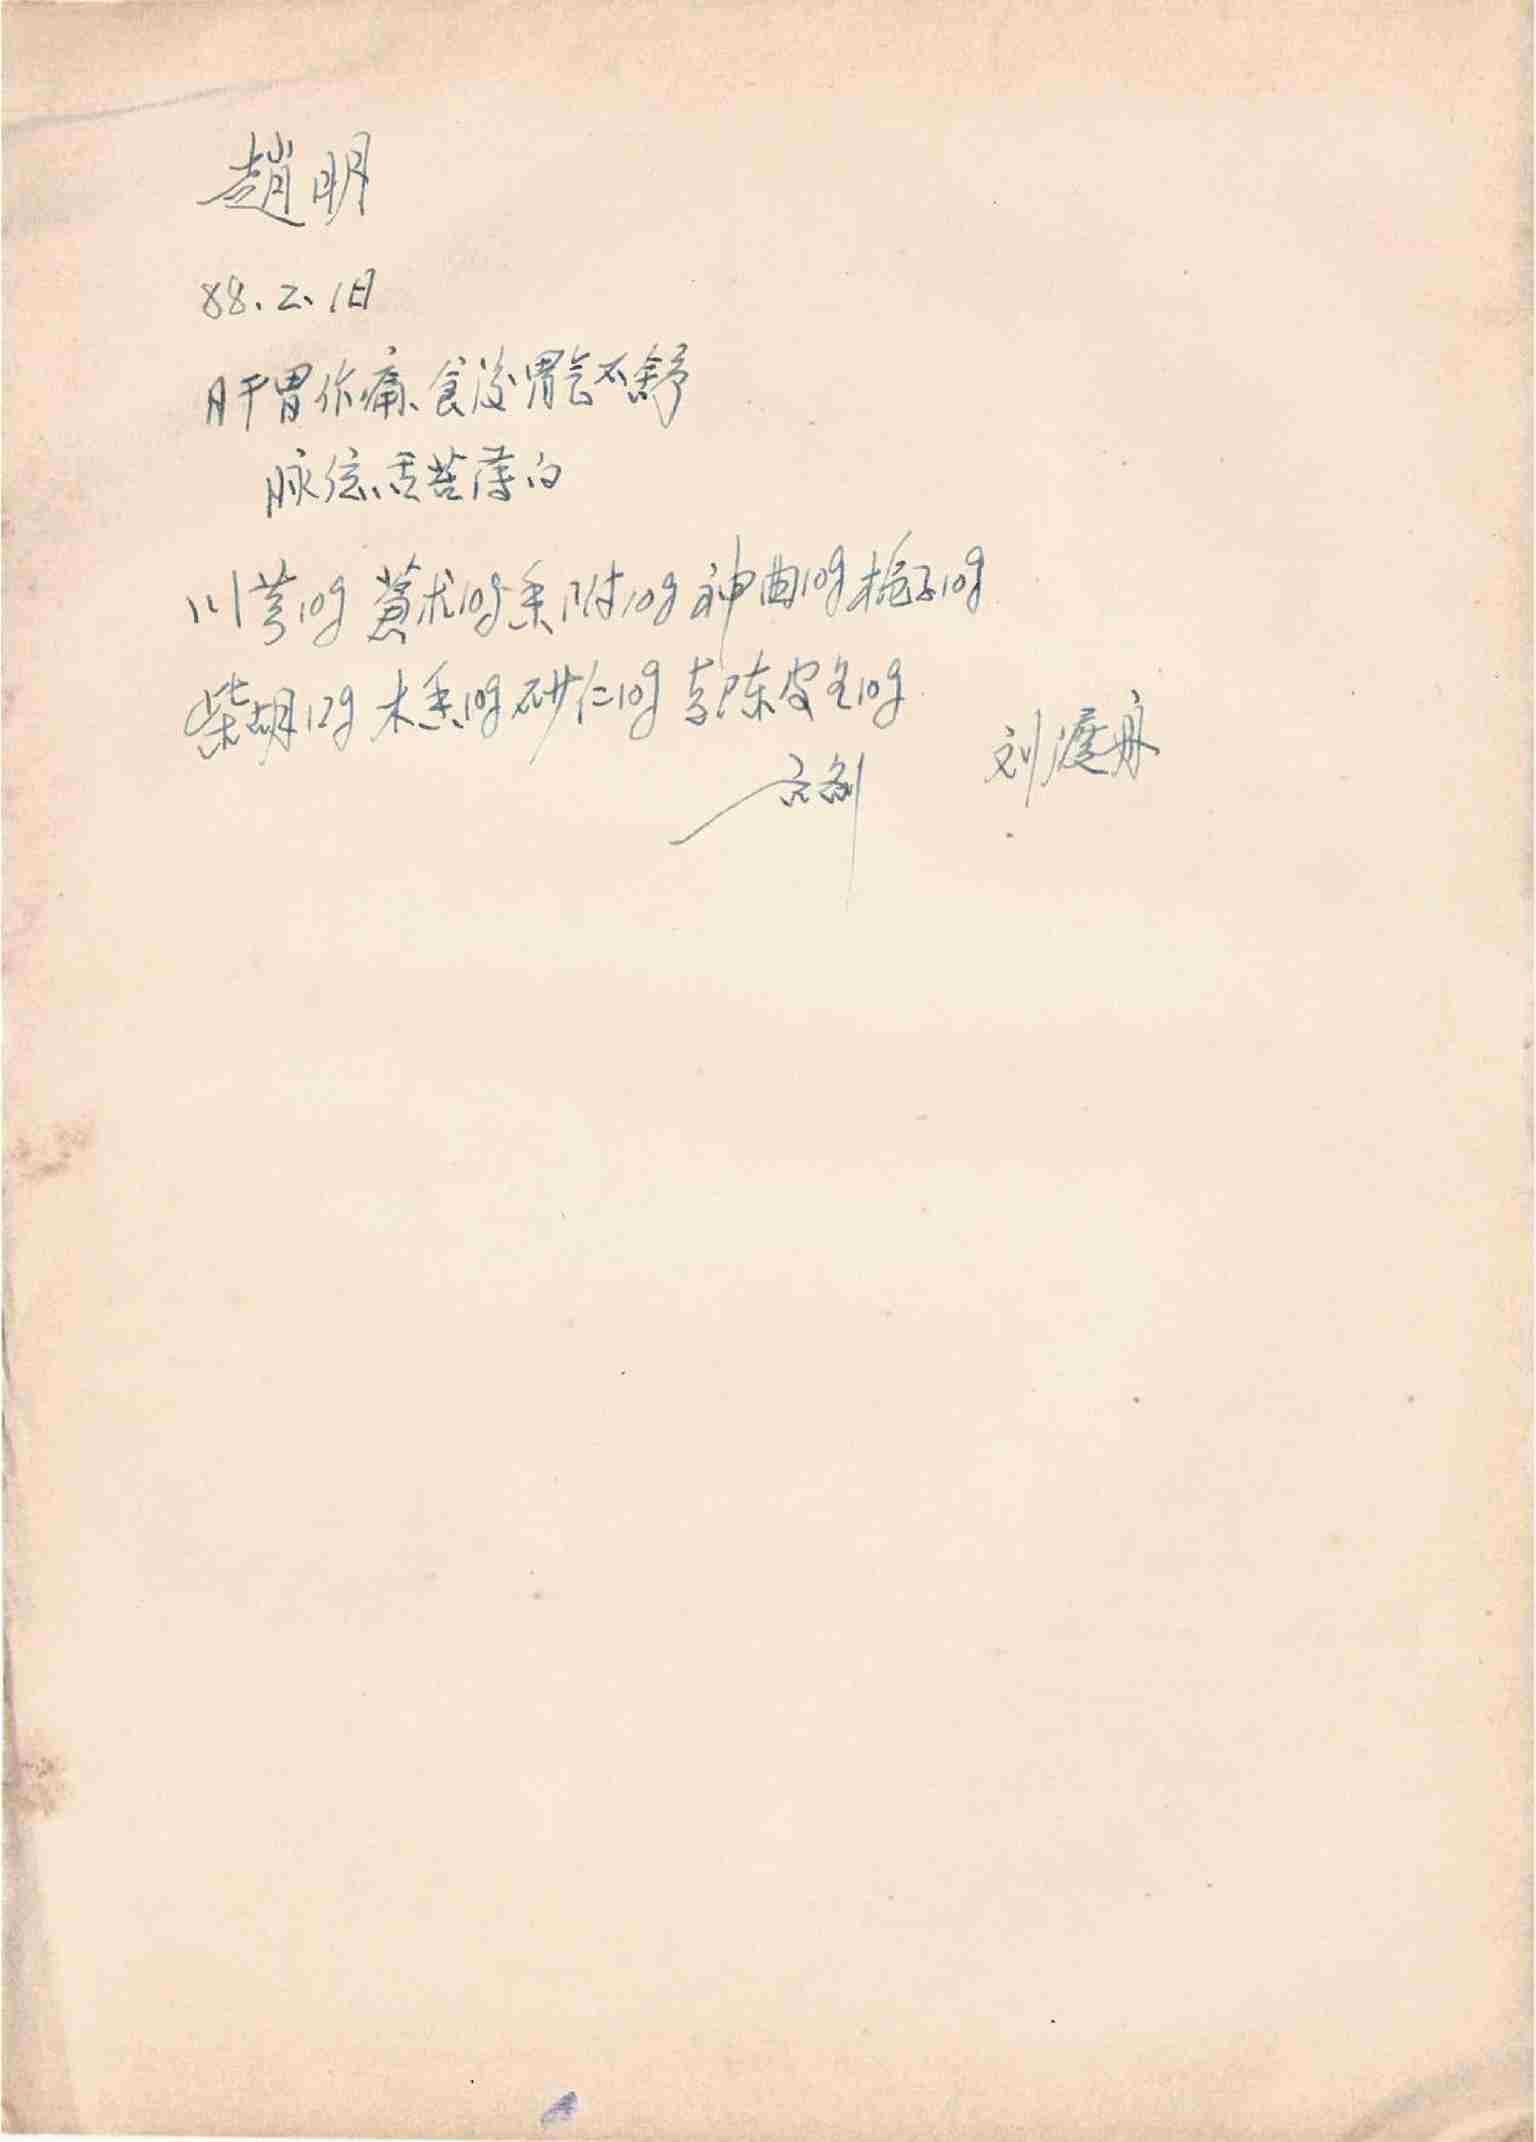 趙明
88.2.1日
肝胃作痛、食後胃脘不舒
脉弦、舌苔薄白
川芎10g 蒼术10g 香附10g 神曲10g 梔子10g
柴胡12g 木香10g 砂仁10g 青陈皮各10g
六剂 刘渡舟